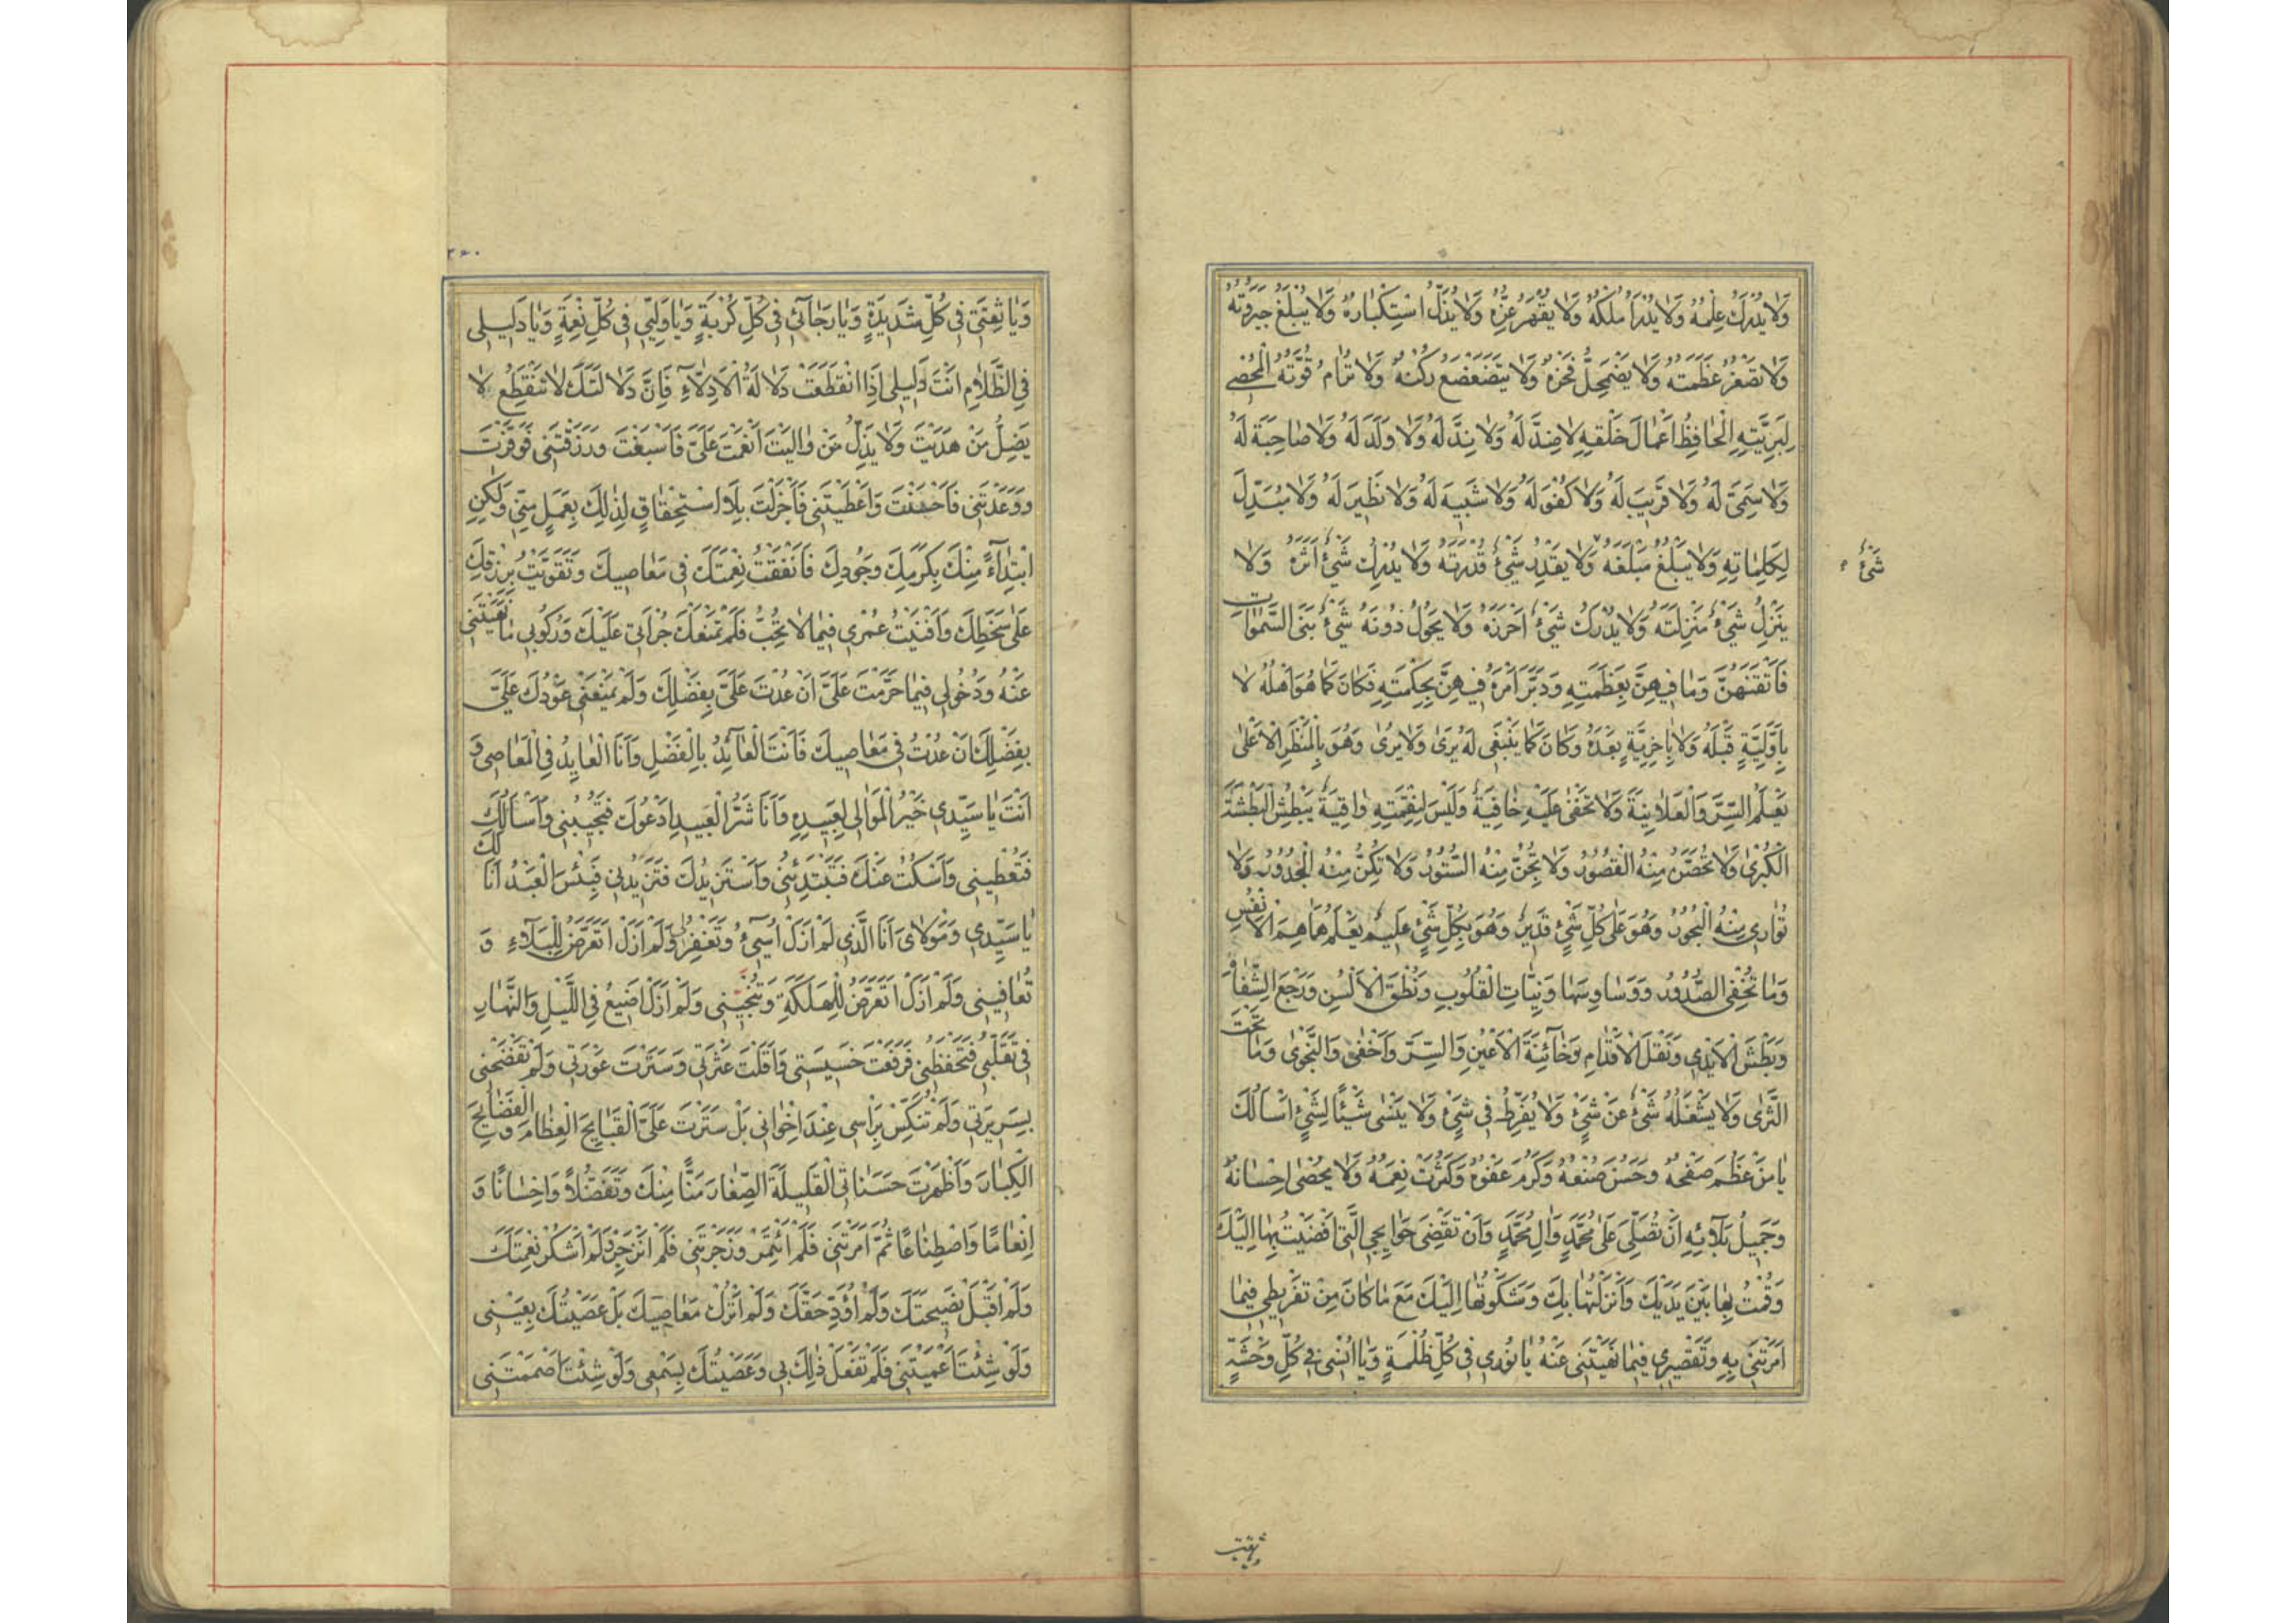 وَلَا يُدْرَكُ عِلْمُهُ وَلَا يُدْرَأُ مُلْكُهُ وَلَا يُقْهَرُ عِزُّهُ وَلَا يُذَلُّ اسْتِكْبَارُهُ وَلَا يُبْلَغُ جَبَرُوتُهُ
وَلَا تَصْغُرُ عَظَمَتُهُ وَلَا يَضْمَحِلُّ فَخْرُهُ وَلَا يَتَضَعْضَعُ رُكْنُهُ وَلَا تُرَامُ قُوَّتُهُ الْمُحْصِي
لِبَرِيَّتِهِ الْحَافِظُ اَعْمَالَ خَلْقِهِ لَا ضِدَّ لَهُ وَلَا نِدَّ لَهُ وَلَا وَلَدَ لَهُ وَلَا صَاحِبَةَ لَهُ
وَلَا سَمِيَّ لَهُ وَلَا قَرِيبَ لَهُ وَلَا كُفْوَ لَهُ وَلَا شَبِيهَ لَهُ وَلَا نَظِيرَ لَهُ وَلَا مُبَدِّلَ
لِكَلِمَاتِهِ وَلَا يَبْلُغُ مَبْلَغَهُ وَلَا يَقْدِرُ شَيْءٌ قُدْرَتَهُ وَلَا يُدْرِكُ شَيْءٌ اَثَرَهُ وَلَا
شَيْءٌ
يَنْزِلُ شَيْءٌ مَنْزِلَتَهُ وَلَا يُدْرَكُ شَيْءٌ اَحْرَزَهُ وَلَا يَحُولُ دُونَهُ شَيْءٌ بَنَى السَّمٰوَاتِ
فَاَتْقَنَهُنَّ وَمَا فِيهِنَّ بِعَظَمَتِهِ وَدَبَّرَ اَمْرَهُ فِيهِنَّ بِحِكْمَتِهِ فَكَانَ كَمَا هُوَ اَهْلُهُ لَا
بِاَوَّلِيَّةٍ قَبْلَهُ وَلَا بِاٰخِرِيَّةٍ بَعْدَهُ وَكَانَ كَمَا يَنْبَغِي لَهُ يَرٰى وَلَا يُرٰى وَهُوَ بِالْمَنْظَرِ الْاَعْلٰى
يَعْلَمُ السِّرَّ وَالْعَلَانِيَةَ وَلَا تَخْفٰى عَلَيْهِ خَافِيَةٌ وَلَيْسَ لِنِقْمَتِهِ وَاقِيَةٌ يَبْطِشُ الْبَطْشَةَ
الْكُبْرٰى وَلَا تُحَصِّنُ مِنْهُ الْقُصُورُ وَلَا تُجِنُّ مِنْهُ السُّتُورُ وَلَا تُكِنُّ مِنْهُ الْجُدُورُ وَلَا
تُوَارِي مِنْهُ الْبُحُورُ وَهُوَ عَلٰى كُلِّ شَيْءٍ قَدِيرٌ وَهُوَ بِكُلِّ شَيْءٍ عَلِيمٌ يَعْلَمُ هَمَاهِمَ الْاَنْفُسِ
وَمَا تُخْفِي الصُّدُورُ وَوَسَاوِسَهَا وَنِيَّاتِ الْقُلُوبِ وَنُطْقَ الْاَلْسُنِ وَرَجْعَ الشِّفَاهِ
وَبَطْشَ الْاَيْدِي وَنَقْلَ الْاَقْدَامِ وَخَائِنَةَ الْاَعْيُنِ وَالسِّرَّ وَاَخْفٰى وَالنَّجْوٰى وَمَا تَحْتَ
الثَّرٰى وَلَا يَشْغَلُهُ شَيْءٌ عَنْ شَيْءٍ وَلَا يُفَرِّطُ فِي شَيْءٍ وَلَا يَنْسٰى شَيْئًا لِشَيْءٍ اَسْاَلُكَ
يَا مَنْ عَظُمَ صَفْحُهُ وَحَسُنَ صُنْعُهُ وَكَرُمَ عَفْوُهُ وَكَثُرَتْ نِعَمُهُ وَلَا يُحْصٰى اِحْسَانُهُ
وَجَمِيلُ بَلَائِهِ اَنْ تُصَلِّيَ عَلٰى مُحَمَّدٍ وَاٰلِ مُحَمَّدٍ وَاَنْ تَقْضِيَ حَوَائِجِي الَّتِي اَفْضَيْتُ بِهَا اِلَيْكَ
وَقُمْتُ بِهَا بَيْنَ يَدَيْكَ وَاَنْزَلْتُهَا بِكَ وَشَكَوْتُهَا اِلَيْكَ مَعَ مَا كَانَ مِنْ تَفْرِيطِي فِيمَا
اَمَرْتَنِي بِهِ وَتَقْصِيرِي فِيمَا نَهَيْتَنِي عَنْهُ يَا نُورِي فِي كُلِّ ظُلْمَةٍ وَيَا اُنْسِي فِي كُلِّ وَحْشَةٍ
وَيَا ثِقَتِي
٣٦٠
وَيَا ثِقَتِي فِي كُلِّ شَدِيدَةٍ وَيَا رَجَائِي فِي كُلِّ كُرْبَةٍ وَيَا وَلِيِّي فِي كُلِّ نِعْمَةٍ وَيَا دَلِيلِي
فِي الظَّلَامِ اَنْتَ دَلِيلِي اِذَا انْقَطَعَتْ دَلَالَةُ الْاَدِلَّاءِ فَاِنَّ دَلَالَتَكَ لَا تَنْقَطِعُ لَا
يَضِلُّ مَنْ هَدَيْتَ وَلَا يَذِلُّ مَنْ وَالَيْتَ اَنْعَمْتَ عَلَيَّ فَاَسْبَغْتَ وَرَزَقْتَنِي فَوَفَّرْتَ
وَوَعَدْتَنِي فَاَحْسَنْتَ وَاَعْطَيْتَنِي فَاَجْزَلْتَ بِلَا اسْتِحْقَاقٍ لِذٰلِكَ بِعَمَلٍ مِنِّي وَلٰكِنِ
ابْتِدَاءً مِنْكَ بِكَرَمِكَ وَجُودِكَ فَاَنْفَقْتُ نِعْمَتَكَ فِي مَعَاصِيكَ وَتَقَوَّيْتُ بِرِزْقِكَ
عَلٰى سَخَطِكَ وَاَفْنَيْتُ عُمْرِي فِيمَا لَا تُحِبُّ فَلَمْ تَمْنَعْكَ جُرْاَتِي عَلَيْكَ وَرُكُوبِي مَا نَهَيْتَنِي
عَنْهُ وَدُخُولِي فِيمَا حَرَّمْتَ عَلَيَّ اَنْ عُدْتَ عَلَيَّ بِفَضْلِكَ وَلَمْ يَمْنَعْنِي عَوْدُكَ عَلَيَّ
بِفَضْلِكَ اَنْ عُدْتُ فِي مَعَاصِيكَ فَاَنْتَ الْعَائِدُ بِالْفَضْلِ وَاَنَا الْعَايِدُ فِي الْمَعَاصِي وَ
اَنْتَ يَا سَيِّدِي خَيْرُ الْمَوَالِي لِعَبِيدِهِ وَاَنَا شَرُّ الْعَبِيدِ اَدْعُوكَ فَتُجِيبُنِي وَاَسْاَلُكَ
فَتُعْطِينِي وَاَسْكُتُ عَنْكَ فَتَبْتَدِئُنِي وَاَسْتَزِيدُكَ فَتَزِيدُنِي فَبِئْسَ الْعَبْدُ اَنَا لَكَ
يَا سَيِّدِي وَمَوْلَايَ اَنَا الَّذِي لَمْ اَزَلْ اُسِيءُ وَتَغْفِرُ لِي وَلَمْ اَزَلْ اَتَعَرَّضُ لِلْبَلَاءِ وَ
تُعَافِينِي وَلَمْ اَزَلْ اَتَعَرَّضُ لِلْهَلَكَةِ وَتُنْجِينِي وَلَمْ اَزَلْ اَضِيعُ فِي اللَّيْلِ وَالنَّهَارِ
فِي تَقَلُّبِي فَتَحْفَظُنِي فَرَفَعْتَ خَسِيسَتِي وَاَقَلْتَ عَثْرَتِي وَسَتَرْتَ عَوْرَتِي وَلَمْ تَفْضَحْنِي
بِسَرِيرَتِي وَلَمْ تُنَكِّسْ بِرَاْسِي عِنْدَ اِخْوَانِي بَلْ سَتَرْتَ عَلَيَّ الْقَبَائِحَ الْعِظَامَ وَالْفَضَائِحَ
الْكِبَارَ وَاَظْهَرْتَ حَسَنَاتِيَ الْقَلِيلَةَ الصِّغَارَ مَنًّا مِنْكَ وَتَفَضُّلًا وَاِحْسَانًا وَ
اِنْعَامًا وَاصْطِنَاعًا ثُمَّ اَمَرْتَنِي فَلَمْ اَئْتَمِرْ وَزَجَرْتَنِي فَلَمْ اَنْزَجِرْ وَلَمْ اَشْكُرْ نِعْمَتَكَ
وَلَمْ اَقْبَلْ نَصِيحَتَكَ وَلَمْ اُؤَدِّ حَقَّكَ وَلَمْ اَتْرُكْ مَعَاصِيَكَ بَلْ عَصَيْتُكَ بِعَيْنِي
وَلَوْ شِئْتَ اَعْمَيْتَنِي فَلَمْ تَفْعَلْ ذٰلِكَ بِي وَعَصَيْتُكَ بِسَمْعِي وَلَوْ شِئْتَ اَصْمَمْتَنِي